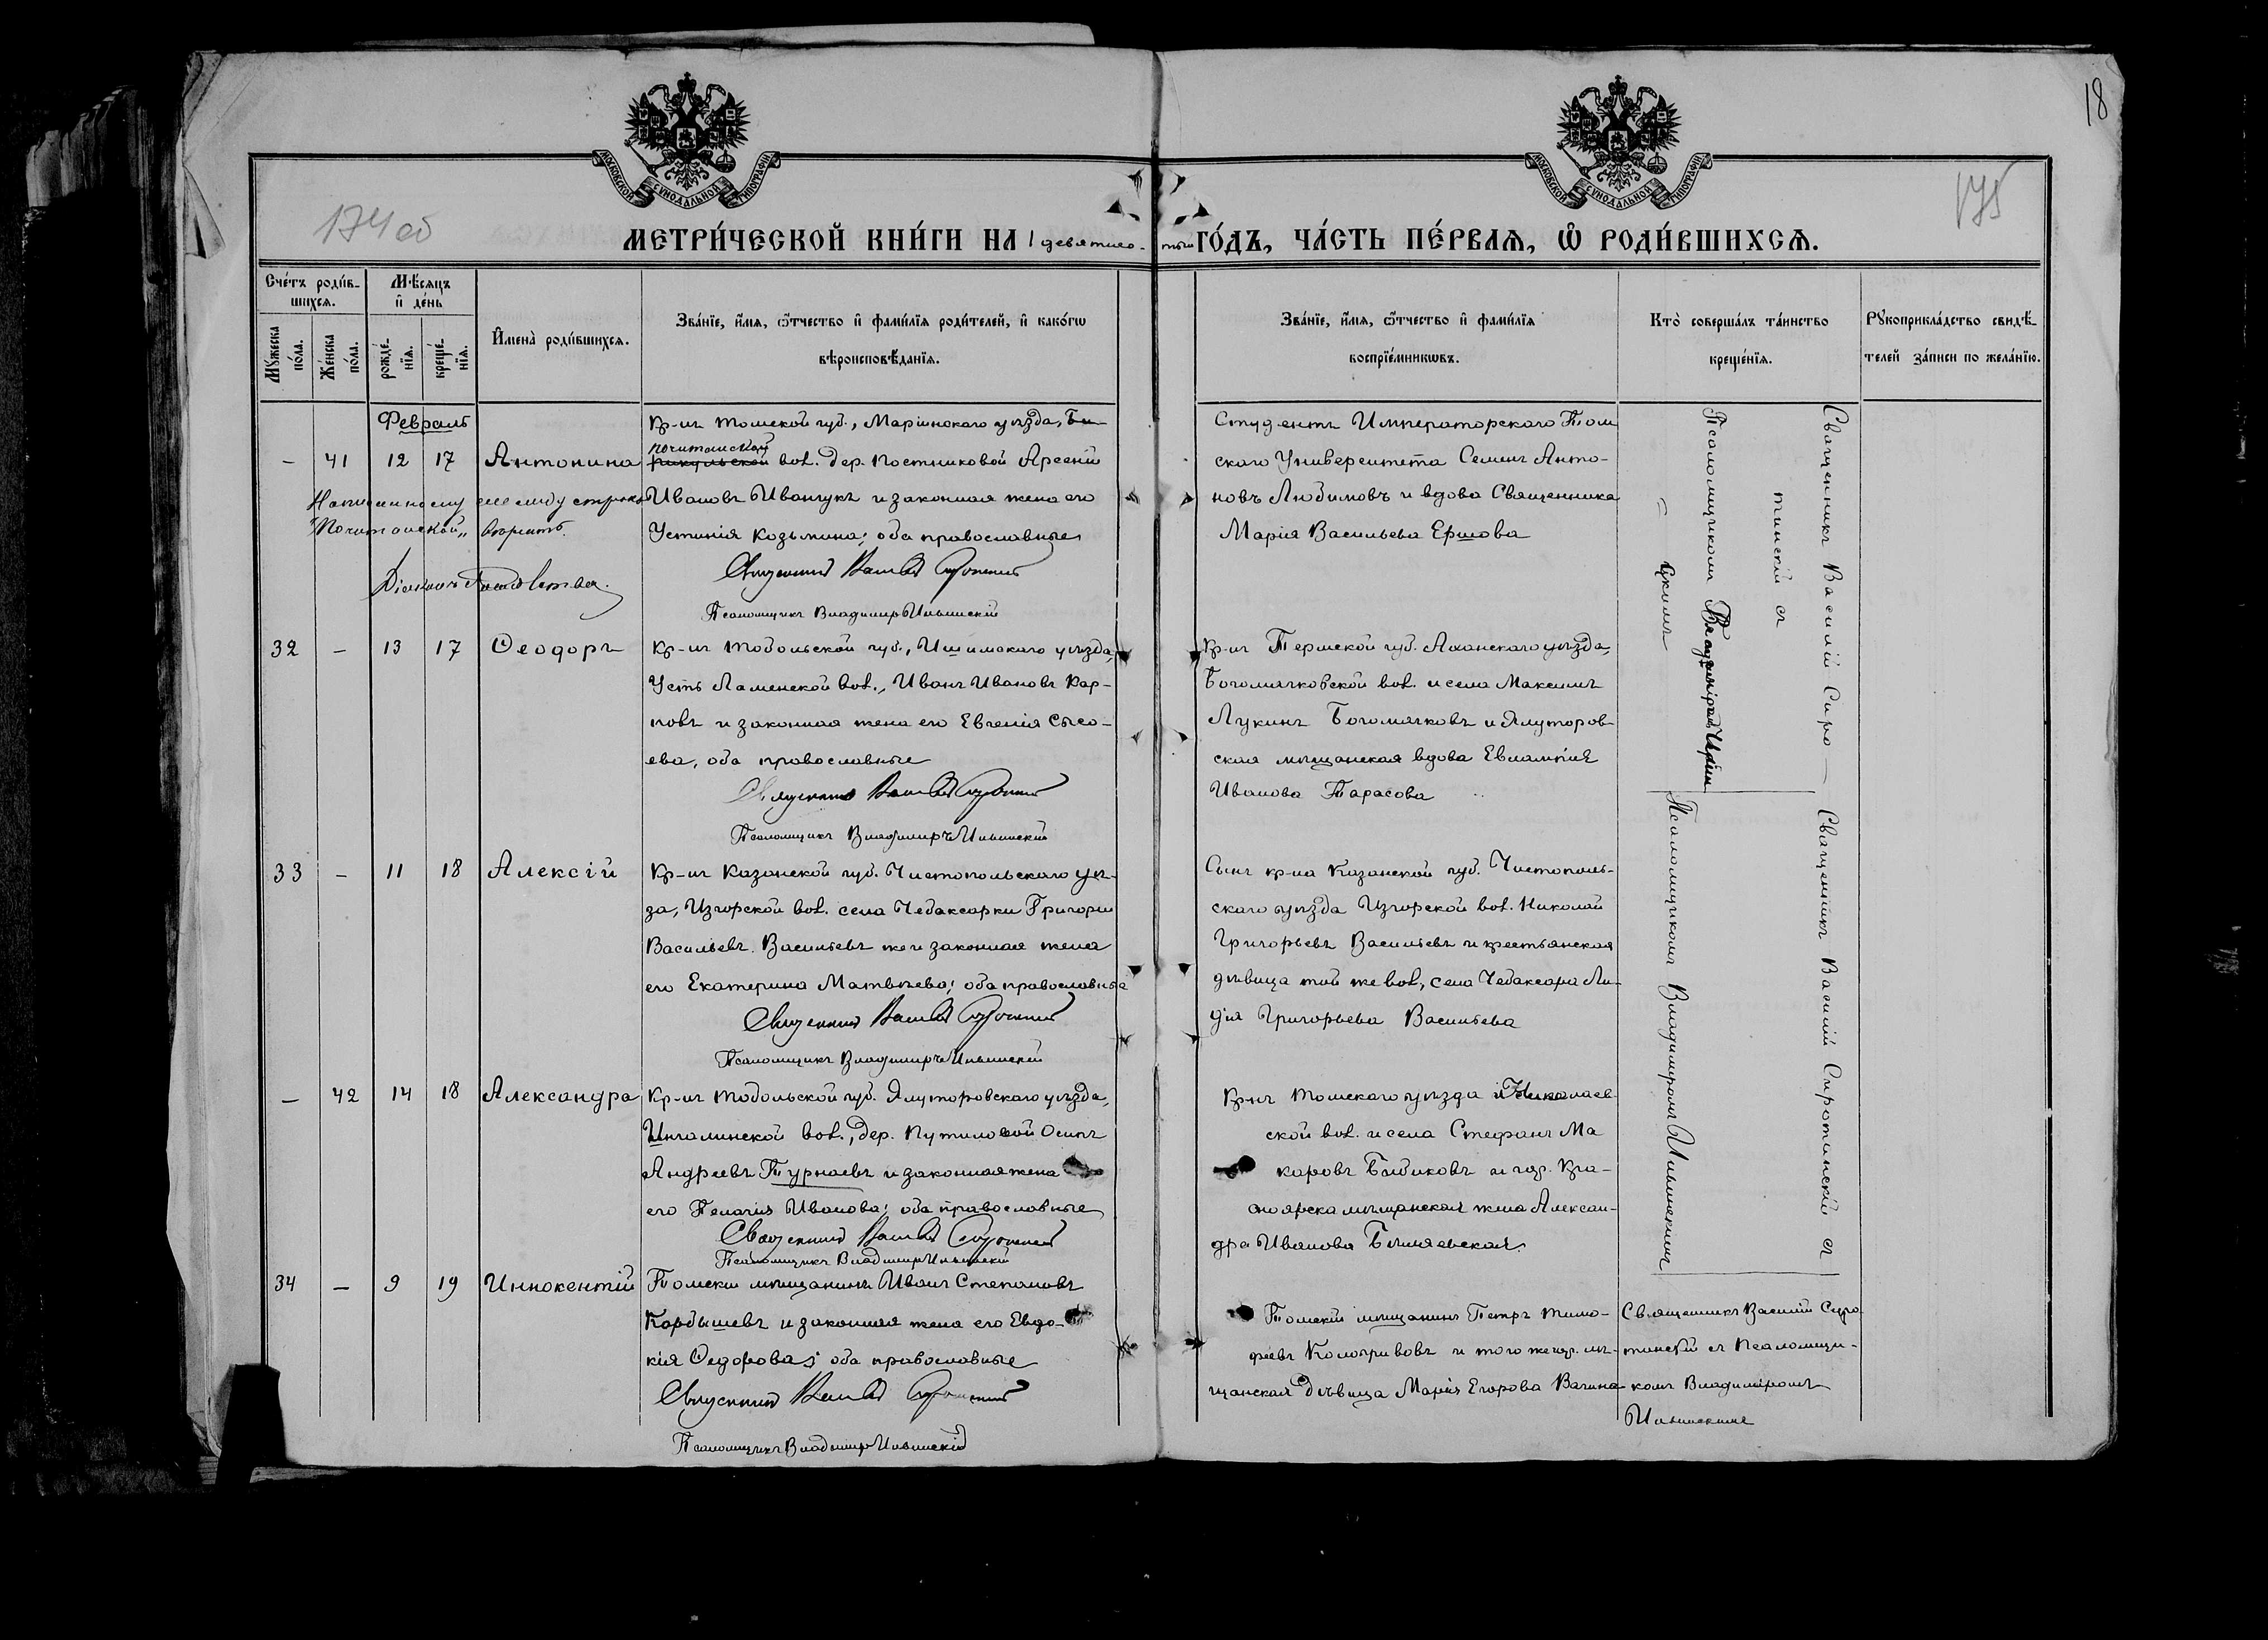 18
174 об
175
МОСКОВСКОЙ СУНОДАЛЬНОЙ ТИПОГРАФІИ
МОСКОВСКОЙ СУНОДАЛЬНОЙ ТИПОГРАФІИ
МЕТРИ́ЧЕСКОЙ КНИ́ГИ НА 1 девятисо- тый ГО́ДЪ, ЧА́СТЬ ПЕ́РВАѦ, Ѡ РОДИ́ВШИХСѦ.
Сче́тъ роди́в-
шихсѧ.
Мꙋ́жеска по́ла.
Же́нска по́ла.
Мѣ́сѧцъ и де́нь
рожде́-нїѧ.
креще́-нїѧ.
Имена̀ роди́вшихсѧ.
Зва́нїе, и́мѧ, ѻ́тчество и фами́лїѧ роди́телей, и како́гѡ
вѣроисповѣ́данїѧ.
Зва́нїе, и́мѧ, ѻ́тчество и фами́лїѧ
воспрїе́мникѡвъ.
Кто̀ соверша́лъ та́инство
креще́нїѧ.
Рꙋкоприкла́дство свидѣ́-
телей за́писи по жела́нїю.
Февраль
– 41 12 17 Антонина
Кр-нъ Томской губ., Маріинскаго уѣзда, Би-
почитанской
рикульской вол. дер. Постниковой Арсеній
Ивановъ Иванчукъ и законная жена его
Устинія Козьмина; оба православные
Написанному между строкъ
"Почитанской" вѣрить.
Діаконъ
Священникъ Василій Сиротинскій
Псаломщикъ Владимиръ Ильинскій
Студентъ Императорскаго Том
скаго Университета Семенъ Анто-
новъ Любимовъ и вдова Священника
Марія Васильева Ершова
Священникъ Василій Сиро –
тинскій съ
Псаломщикомъ Владиміромъ Ильин
= скимъ
32 – 13 17 Ѳеодоръ
Кр-нъ Тобольской губ., Ишимскаго уѣзда,
Усть Ламенской вол., Иванъ Ивановъ Кар-
повъ и законная жена его Евгенія Сысо-
ева, оба православные
Священникъ Василій Сиротинскій
Псаломщикъ Владимиръ Ильинскій
Кр-нъ Пермской губ. Аханскаго уѣзда,
Богомячковской вол. и села Максимъ
Лукинъ Богомячковъ и Ялуторов-
ская мѣщанская вдова Евлампія
Иванова Тарасова
33 – 11 18 Алексій
Кр-нъ Казанской губ. Чистопольскаго уѣ-
зда, Изгорской вол. села Чебаксарки Григорій
Васильевъ Васильевъ же и законная жена
его Екатерина Матвѣева; оба православные
Священникъ Василій Сиротинскій
Псаломщикъ Владимиръ Ильинскій
Сынъ кр-на Казанской губ. Чистополь-
скаго уѣзда Изгорской вол. Николай
Григорьевъ Васильевъ и крестьянская
дѣвица той же вол., села Чебаксара Ли-
дія Григорьева Васильева
Священникъ Василій Сиротинскій съ
Псаломщикомъ Владиміромъ Ильинскимъ
– 42 14 18 Александра
Кр-нъ Тобольской губ. Ялуторовскаго уѣзда,
Ингалинской вол., дер. Путиловой Осипъ
Андреевъ Турнаевъ и законная жена
его Пелагія Иванова; оба православные
Священникъ Василій Сиротинскій
Псаломщикъ Владимиръ Ильинскій
Кр-нъ Томскаго уѣзда Николаев-
ской вол. и села Стефанъ Ма
каровъ Бибиковъ и гор. Кра-
сноярска мѣщанская жена Алексан-
дра Иванова
34 – 9 19 Иннокентій
Томскій мѣщанинъ Иванъ Степановъ
Карбышевъ и законная жена его Евдо-
кія Ѳедорова; оба православные
Священникъ Василій Сиротинскій
Псаломщикъ Владимиръ Ильинскій
Томскій мѣщанинъ Петръ Тимо-
феевъ Колопривовъ и того же гор. мѣ-
щанская дѣвица Марія Егорова Вагина
Священникъ Василій Сиро-
тинскій съ Псаломщи-
комъ Владиміромъ
Ильинскимъ